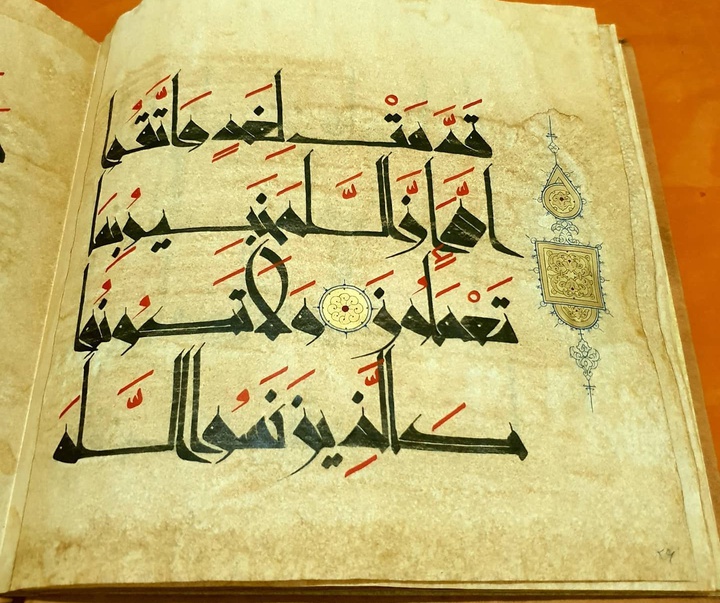 قَدَّمَتْ لِغَدٍ وَاتَّقُوا
اللَّهَ إِنَّ اللَّهَ خَبِيرٌ بِمَا
تَعْمَلُونَ وَلَا تَكُونُوا
كَالَّذِينَ نَسُوا اللَّهَ